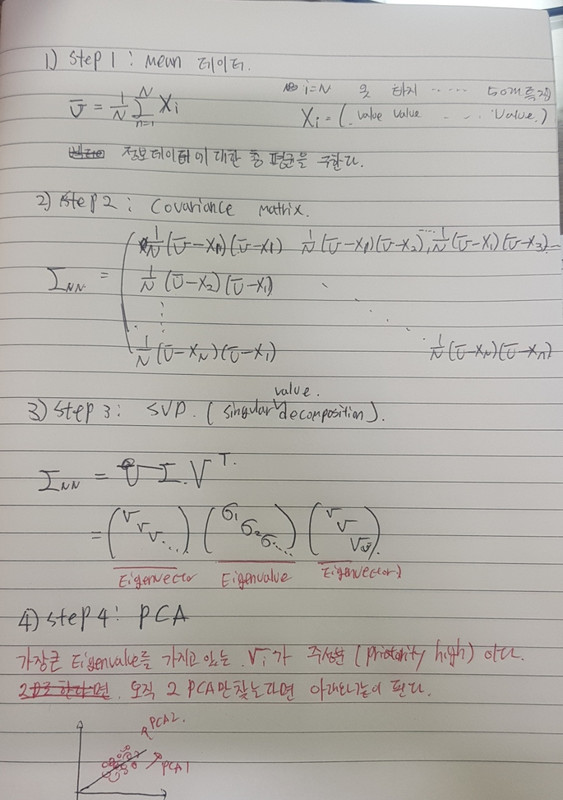 1) Step 1 : mean 데이터.
i=N 일 때
Ū = 1/N Σ_{n=1}^{N} Xi
Xi = (. value value - - . . . value.)
정보데이터에 대한 총 평균을 구한다.
2) Step 2 : Covariance matrix.
1/N (Ū-Xn)(Ū-X1) 1/N (Ū-Xn)(Ū-X2), 1/N (Ū-X1)(Ū-X3) --
Σ_NN = 1/N (Ū-X2)(Ū-X1)
1/N (Ū-XN)(Ū-X1) 1/N (Ū-XN)(Ū-Xn)
value.
3) Step 3 : SVD. (singular decomposition).
Σ_NN = U Σ. V^T.
= (V V V...) (σ1 σ2 σ...) (V V V)
Eigenvector Eigenvalue Eigenvector
4) Step 4 : PCA
가장큰 Eigenvalue를 가지고 있는 Vi가 주성분 (priotority high) 이다.
오직 2 PCA만 찾는다면 된다.
PCA2.
PCA1